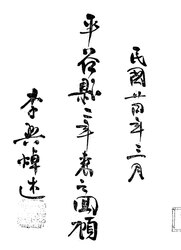 民國廿四年三月
平谷縣二年來之回顧
李興焯述